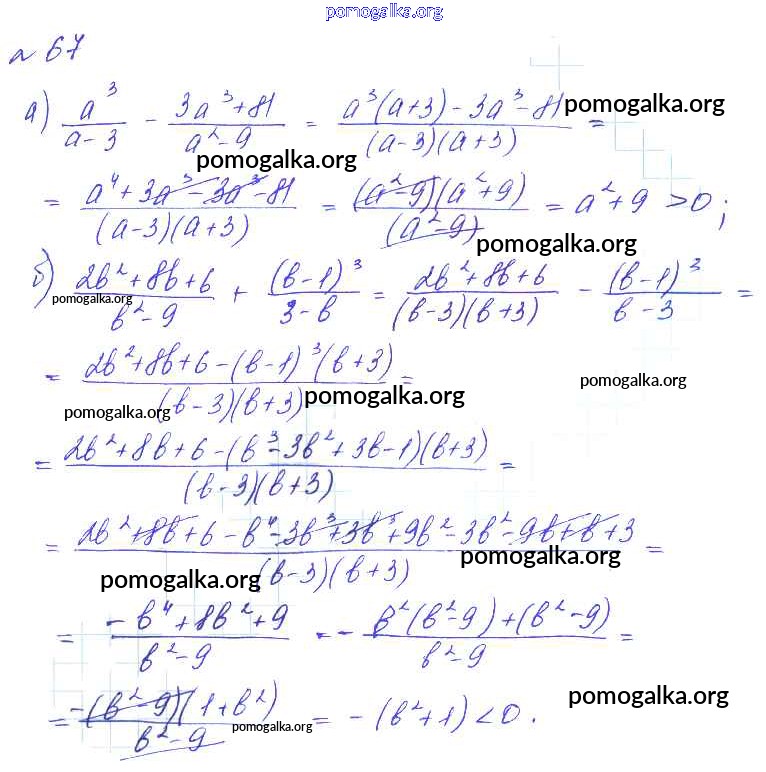 pomogalka.org
№ 67
а) a³/(a-3) - (3a³+81)/(a²-9) = (a³(a+3)-3a³-81)/((a-3)(a+3)) = pomogalka.org
pomogalka.org
= (a⁴+3a³-3a³-81)/((a-3)(a+3)) = ((a²-9)(a²+9))/(a²-9) = a²+9 >0;
pomogalka.org
б) (2b²+8b+6)/(b²-9) + (b-1)³/(3-b) = (2b²+8b+6)/((b-3)(b+3)) - (b-1)³/(b-3) =
pomogalka.org
= (2b²+8b+6-(b-1)³(b+3))/((b-3)(b+3)) =
pomogalka.org
pomogalka.org pomogalka.org
= (2b²+8b+6-(b³-3b²+3b-1)(b+3))/((b-3)(b+3)) =
= (2b²+8b+6-b⁴-3b³+3b³+9b²-3b²-9b+b+3)/((b-3)(b+3)) =
pomogalka.org
pomogalka.org
= (-b⁴+8b²+9)/(b²-9) = - (b²(b²-9)+(b²-9))/(b²-9) =
= (-(b²-9)(1+b²))/(b²-9) = -(b²+1)<0.
pomogalka.org
pomogalka.org